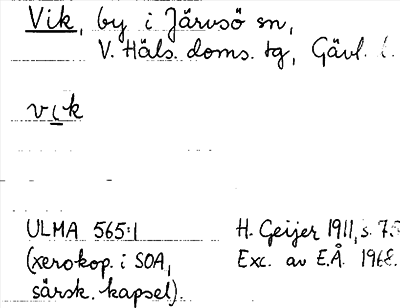 Vik, by i Järvsö sn,
V. Häls. doms. tg, Gävl. l.
vik
ULMA 565:1 H. Geijer 1911, s. 75
(xerokop. i SOA, Exc. av E.Å. 1968.
särsk. kapsel).